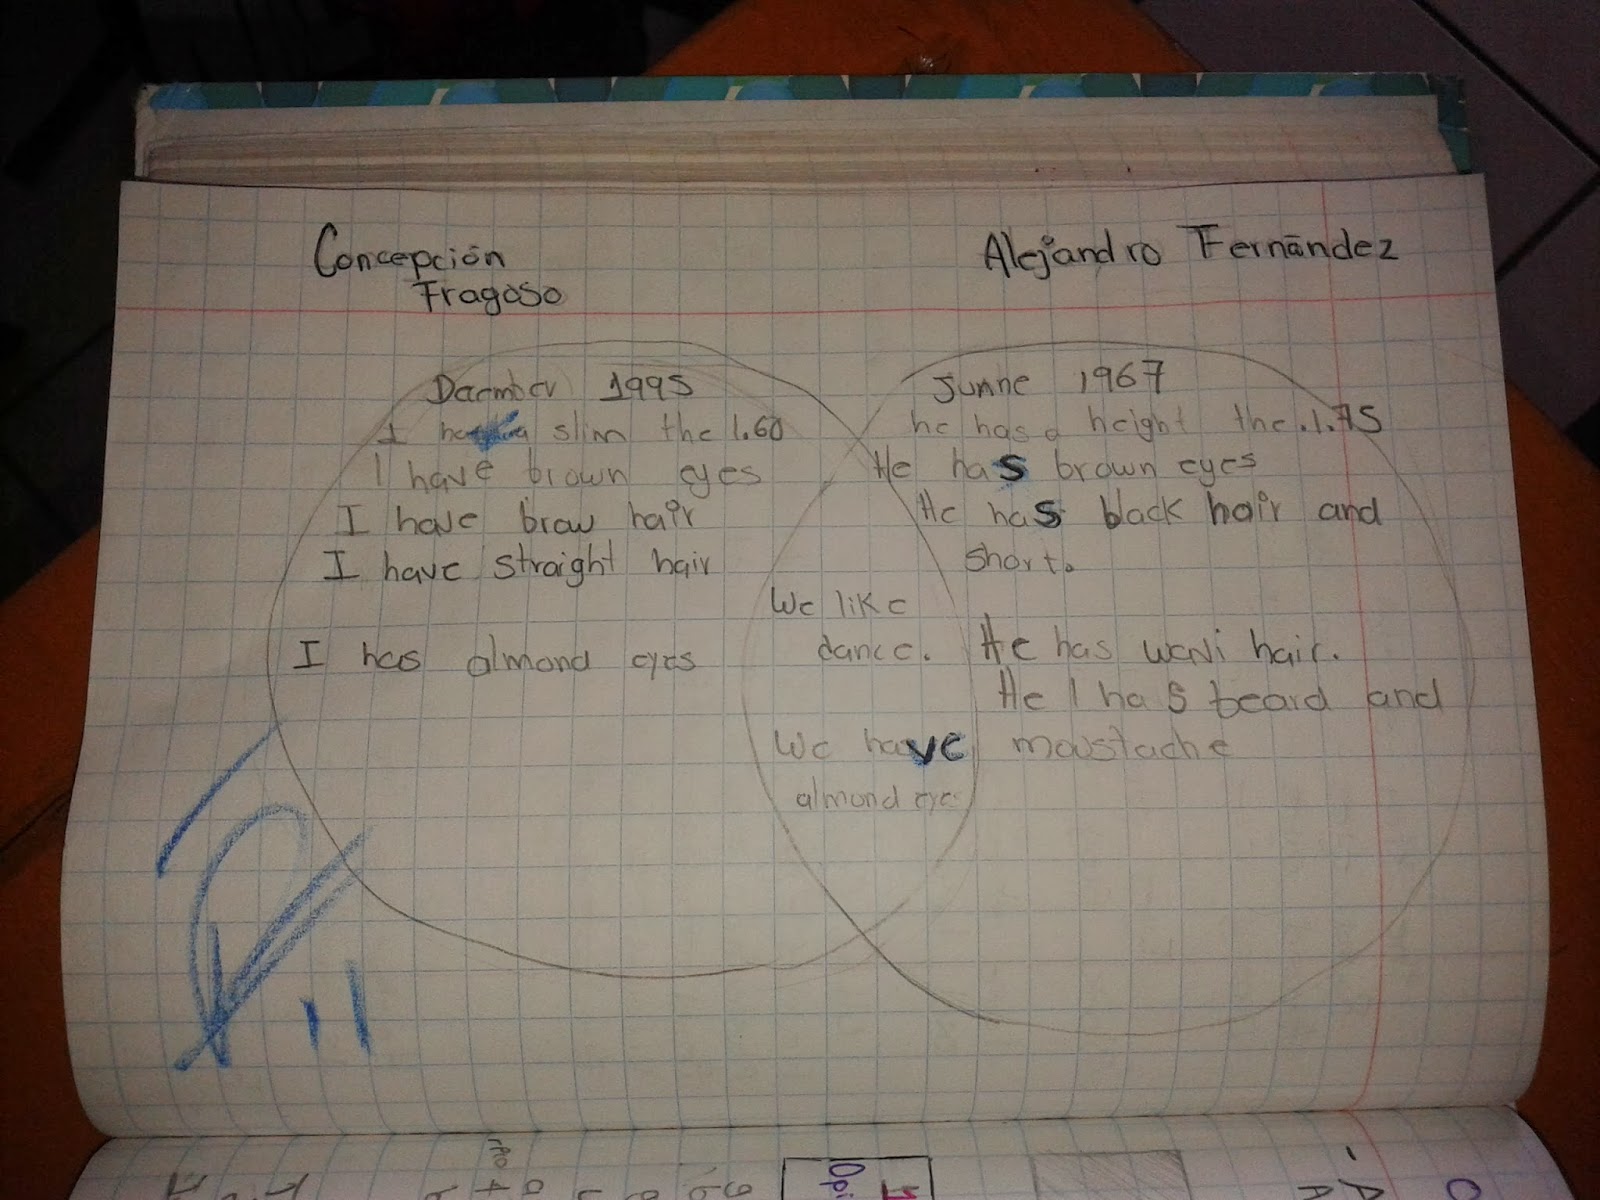 Concepción
Fragoso
Alejandro Fernández
Dacmber 1995
I slim the 1.60
I have brown eyes
I have braw hair
I have straight hair
I has almond eyes
We like
dance.
We have
almond eye
Junne 1967
he has a height the .1.75
He has brown eyes
He has black hair and
short.
He has wavi hair.
He I has beard and
moustache